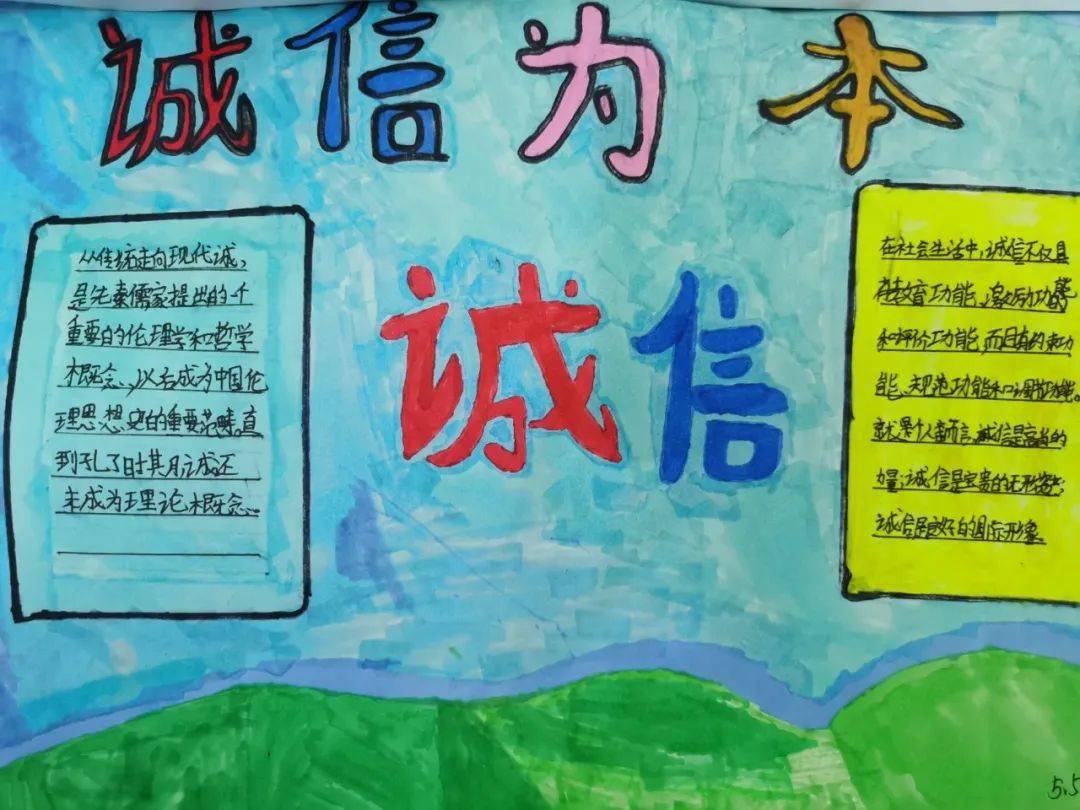 诚信为本
诚信
从传统走向现代诚,
是先秦儒家提出的一个
重要的伦理学和哲学
概念,以后成为中国伦
理思想史的重要范畴。直
到孔了时其月诚还
未成为理论概念。
在社会生活中,诚信不仅具
有教育功能、激励功能
和评价功能,而且有约束功
能、规范功能和调节功能。
就是个人而言,诚信是高尚的
力量;诚信是宝贵的无形资产;
诚信是良好的国际形象
5.5